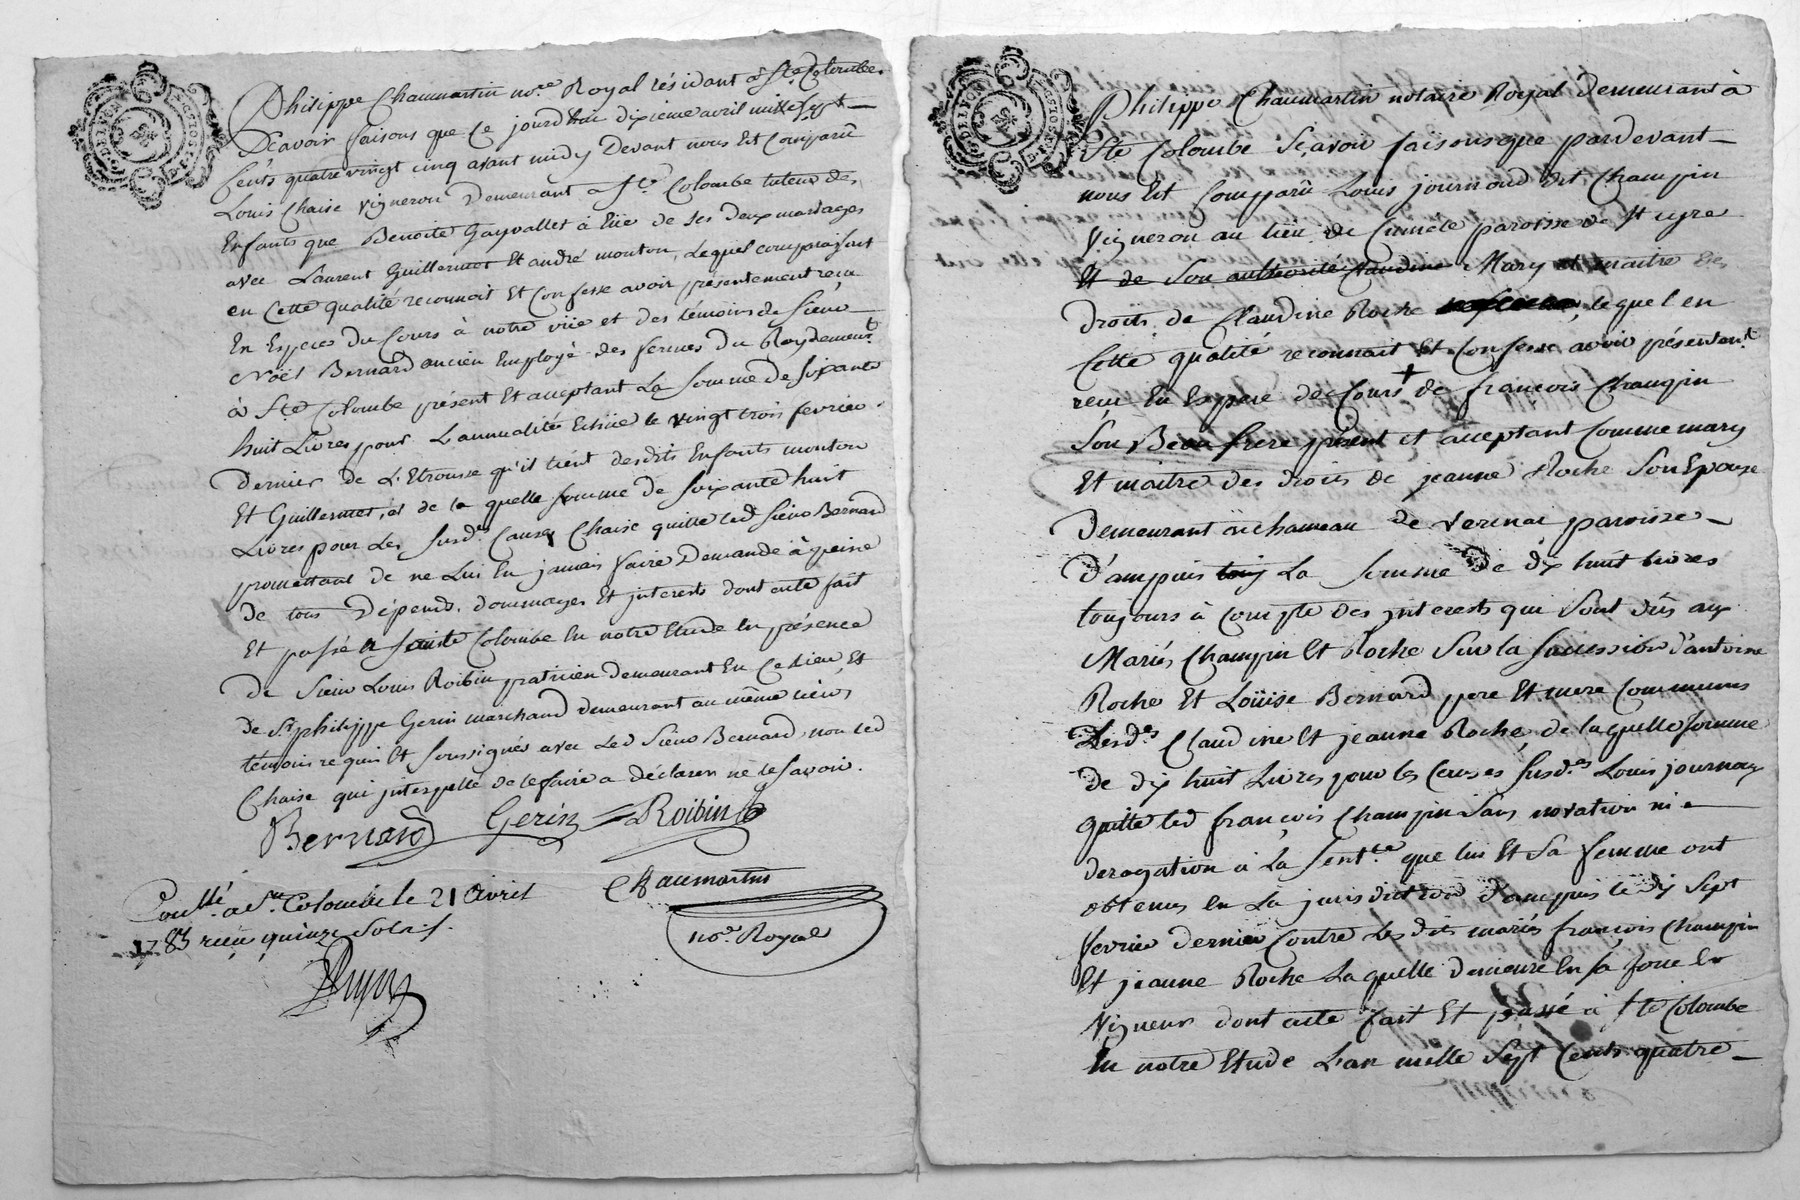 Philippe Chaumartin no.re Royal résidant à Ste Colombe
Scavoir faisons que ce jourdhui dixieme avril mille sept
Cents quatre vingt cinq avant midy Devant nous Est Comparû
Louis Chaise vigneron Demeurant a Ste Colombe tuteur des
Enfants que Benoite Gayvallet à Eüe de ses deux mariages
avec Laurent Guillermet Et andré mouton, Lequel comparaissant
en Cette qualité reconnoit Et Confesse avoir présentement reçu
En Espèces du Cours à notre vüe et des témoins de Sieur
Noël Bernard ancien Employé des fermes du Roy demeur.t
à Ste Colombe présent Et acceptant La Somme de soixante
huit Livres pour L'annualité Echüe le vingt trois fevrier
Dernier de L'Etrousse qu'il tient desdits Enfants mouton
Et Guillermet, et de la quelle somme de soixante huit
Livres pour Les susd.es Causes Chaise quitte led Sieur Bernard
promettant de ne Lui En jamais faire Demande à peine
de tous Dépends, dommages Et interests dont acte fait
Et passé a Sainte Colombe En notre Etude En présence
de Sieur Louis Roibin praticien demeurant En Ce Lieu, Et
de Sr philippe Gerin marchand demeurant au même Lieu,
témoins requis Et soussignés avec Led Sieur Bernard, non led
Chaise qui interpellé de le faire a déclaré ne le savoir.
Bernard Gerin Roibin
Chaumartin
no.re Royal
Con.llé a Ste Colombe le 21 Avril
1785 reçu quinze Sols
Philippe Chaumartin notaire Royal demeurant à
Ste Colombe Sçavoir faisons que pardevant
nous Est Comparû Louis journoud dit Champin
Vigneron au lieu de Cumele paroisse de St Cyre
Et de Son authorité Claudine Mary et maitre des
droits de Claudine Roche lequel en
Cette qualité reconnait Et Confesse avoir présentem.t
reçu En Espece de Cours de françois Champin
Son Beau frere présent et acceptant Comme mary
Et maitre des droits de jeanne Roche Son Epouse
Demeurant au hameau de Verenay paroisse
D'ampuis La Somme de dix huit livres
toujours à Compte des interests qui sont dûs aux
Mariés Champin Et Roche Sur la Succession d'antoine
Roche Et Loüise Bernard pere Et mere Communs
Desd.es Claudine Et jeanne Roche, de laquelle somme
de dix huit Livres pour les Causes susd.es Louis journoux
quitte led françois Champin sans novation ni
derogation à La Sent.ce que lui Et Sa femme ont
obtenus En La jurisdiction D'ampuis le dix Sept
fevrier dernier Contre Les dits mariés françois Champin
Et jeanne Roche Laquelle demeure En sa force En
Vigueur dont acte fait Et passé à Ste Colombe
En notre Etude L'an mille Sept Cents quatre